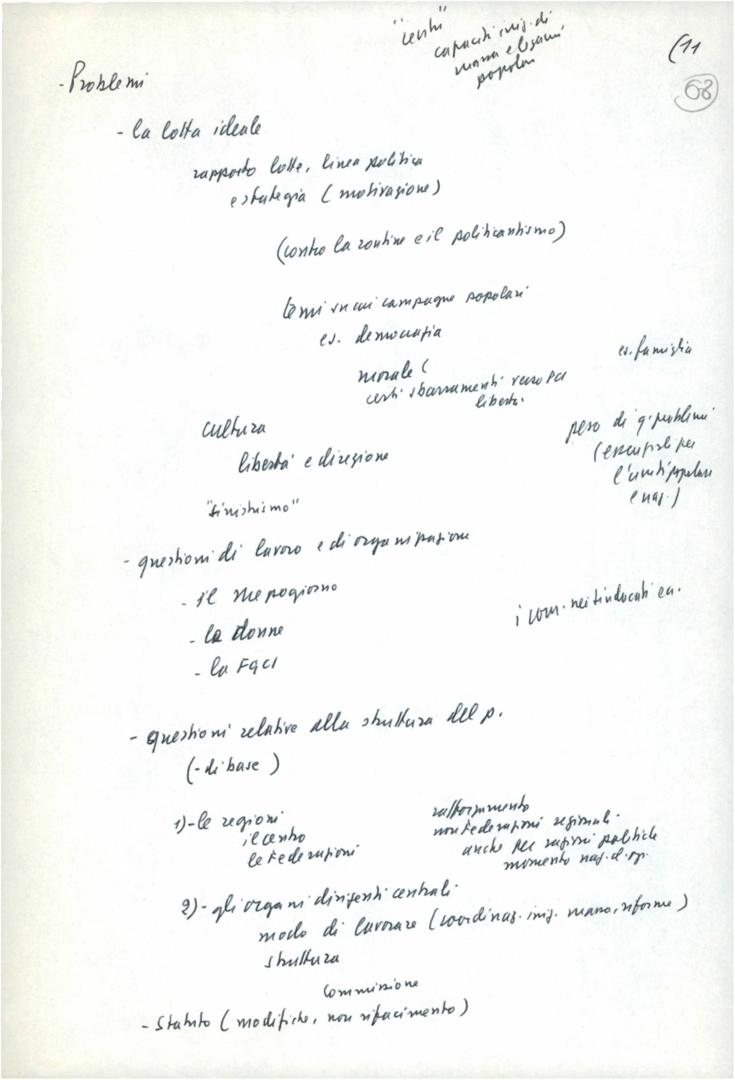 "centri"
capacità iniz. di
massa e legami
popolari
(11
68
- Problemi
- la lotta ideale
rapporto lotte, linea politica
e strategia (motivazione)
(contro la routine e il politicantismo)
temi su cui campagne popolari
es. democrazia
es. famiglia
morale (
certi sbarramenti verso PCI
libertà.
cultura
libertà e direzione
peso di q. problemi
(essenziale per
l'unità popolare
e naz.)
"sinistrismo"
- questioni di lavoro e di organizzazione
- il Mezzogiorno
- le donne
- la FGCI
i com. nei sindacati ecc.
- questioni relative alla struttura del p.
(- di base)
1)- le regioni
il centro
le Federazioni
rafforzamento
non Federazioni regionali.
anche per ragioni politiche
momento naz. d. op.
2)- gli organi dirigenti centrali.
modo di lavorare (coordinaz. iniz. massa, riforme)
struttura
commissione
- Statuto (modifiche, non rifacimento)